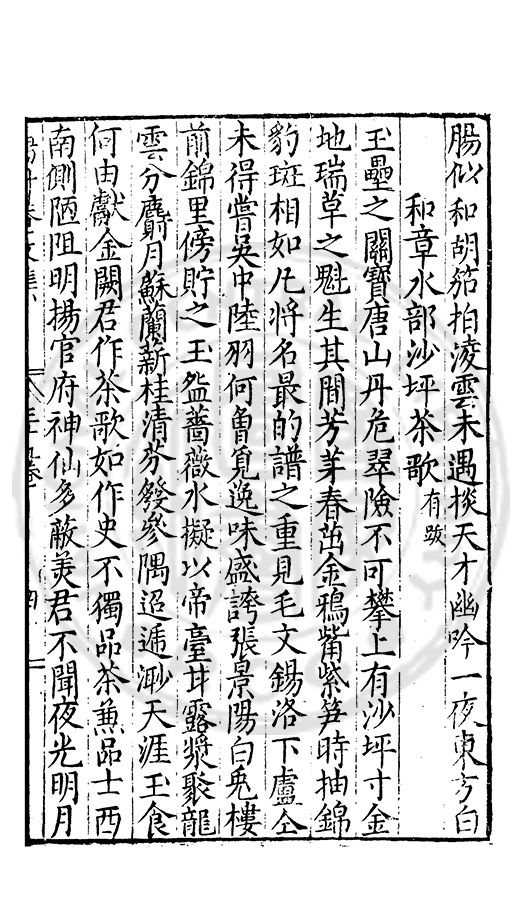 腸似和胡笳拍淩雲未遇掞天才幽吟一夜東方白
和章水部沙坪茶歌有跋
玉壘之關寶唐山丹危翠險不可攀上有沙坪寸金
地瑞草之魁生其間芳芽春茁金鴉觜紫笋時抽錦
豹斑相如凡將名最的譜之重見毛文錫洛下盧仝
未得嘗吳中陸羽何曾覓逸味盛誇張景陽白兎樓
前錦里傍貯之玉盌薔薇水擬以帝臺甘露漿聚龍
雲分麝月蘇蘭薪桂清芬發參隅迢遞渺天涯玉食
何由獻金闕君作茶歌如作史不獨品茶兼品士西
南側陋阻明揚官府神仙多蔽美君不聞夜光明月